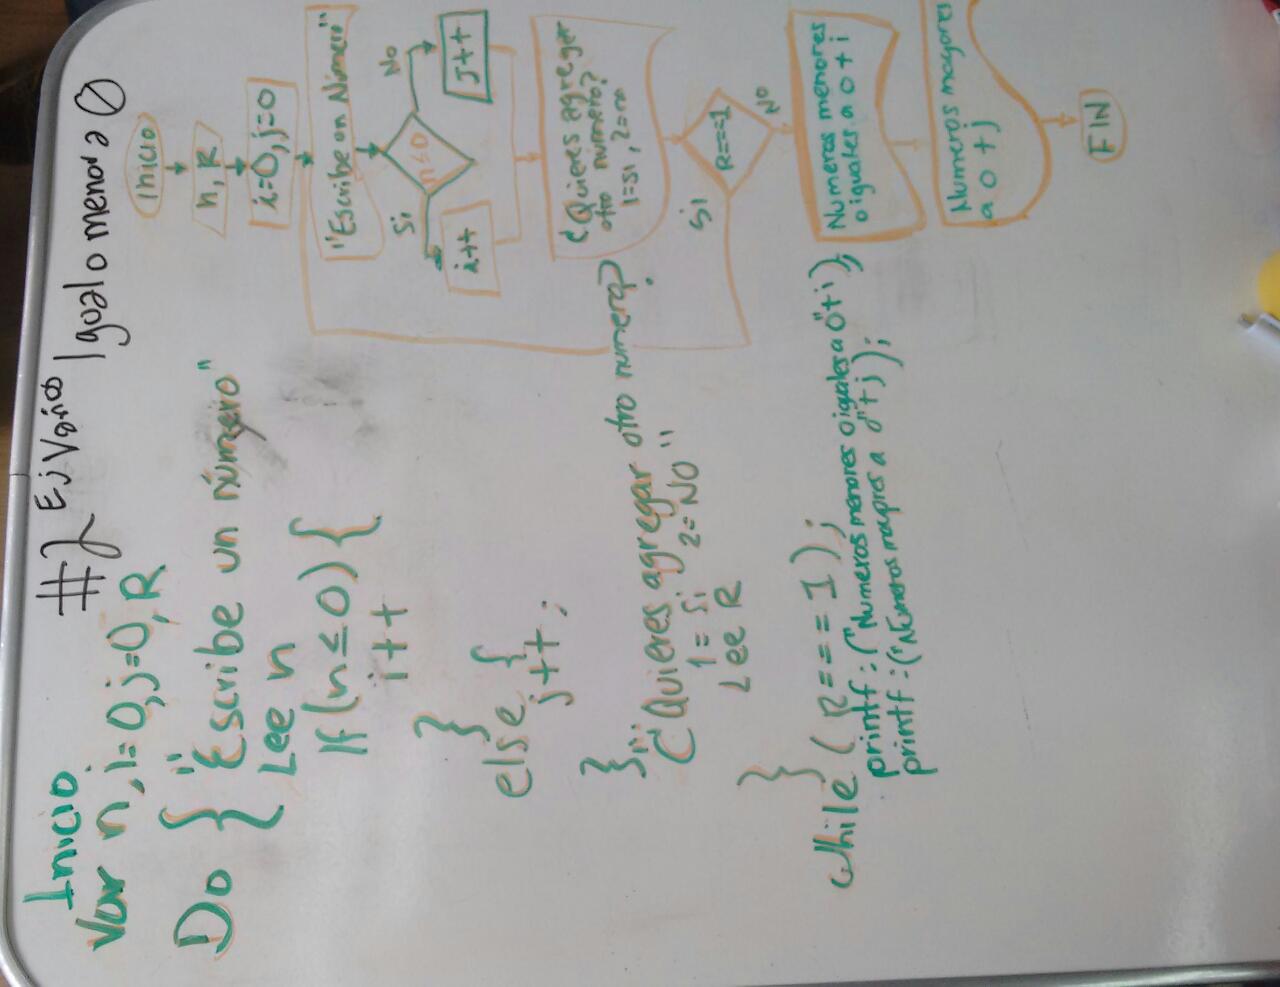 #2 Ej Varios Igual o menor a 0
Inicio
Var n, i=0, j=0, R
Do { "Escribe un número"
Lee n
If (n≤0) {
i++
}
else {
j++;
};
"¿Quieres agregar otro numero?
1=si 2=NO"
Lee R
}
while (R===1);
printf:("Numeros menores o iguales a 0"+i);
printf:("Numeros mayores a 0"+j);
Inicio
n, R
i=0, j=0
"Escribe un Número"
n≤0
Si
No
i++
J++
¿Quieres agregar
otro numero?
1=si, 2=no
R===1
Si
No
Numeros menores
o iguales a 0 + i
Numeros mayores
a 0 + j
FIN